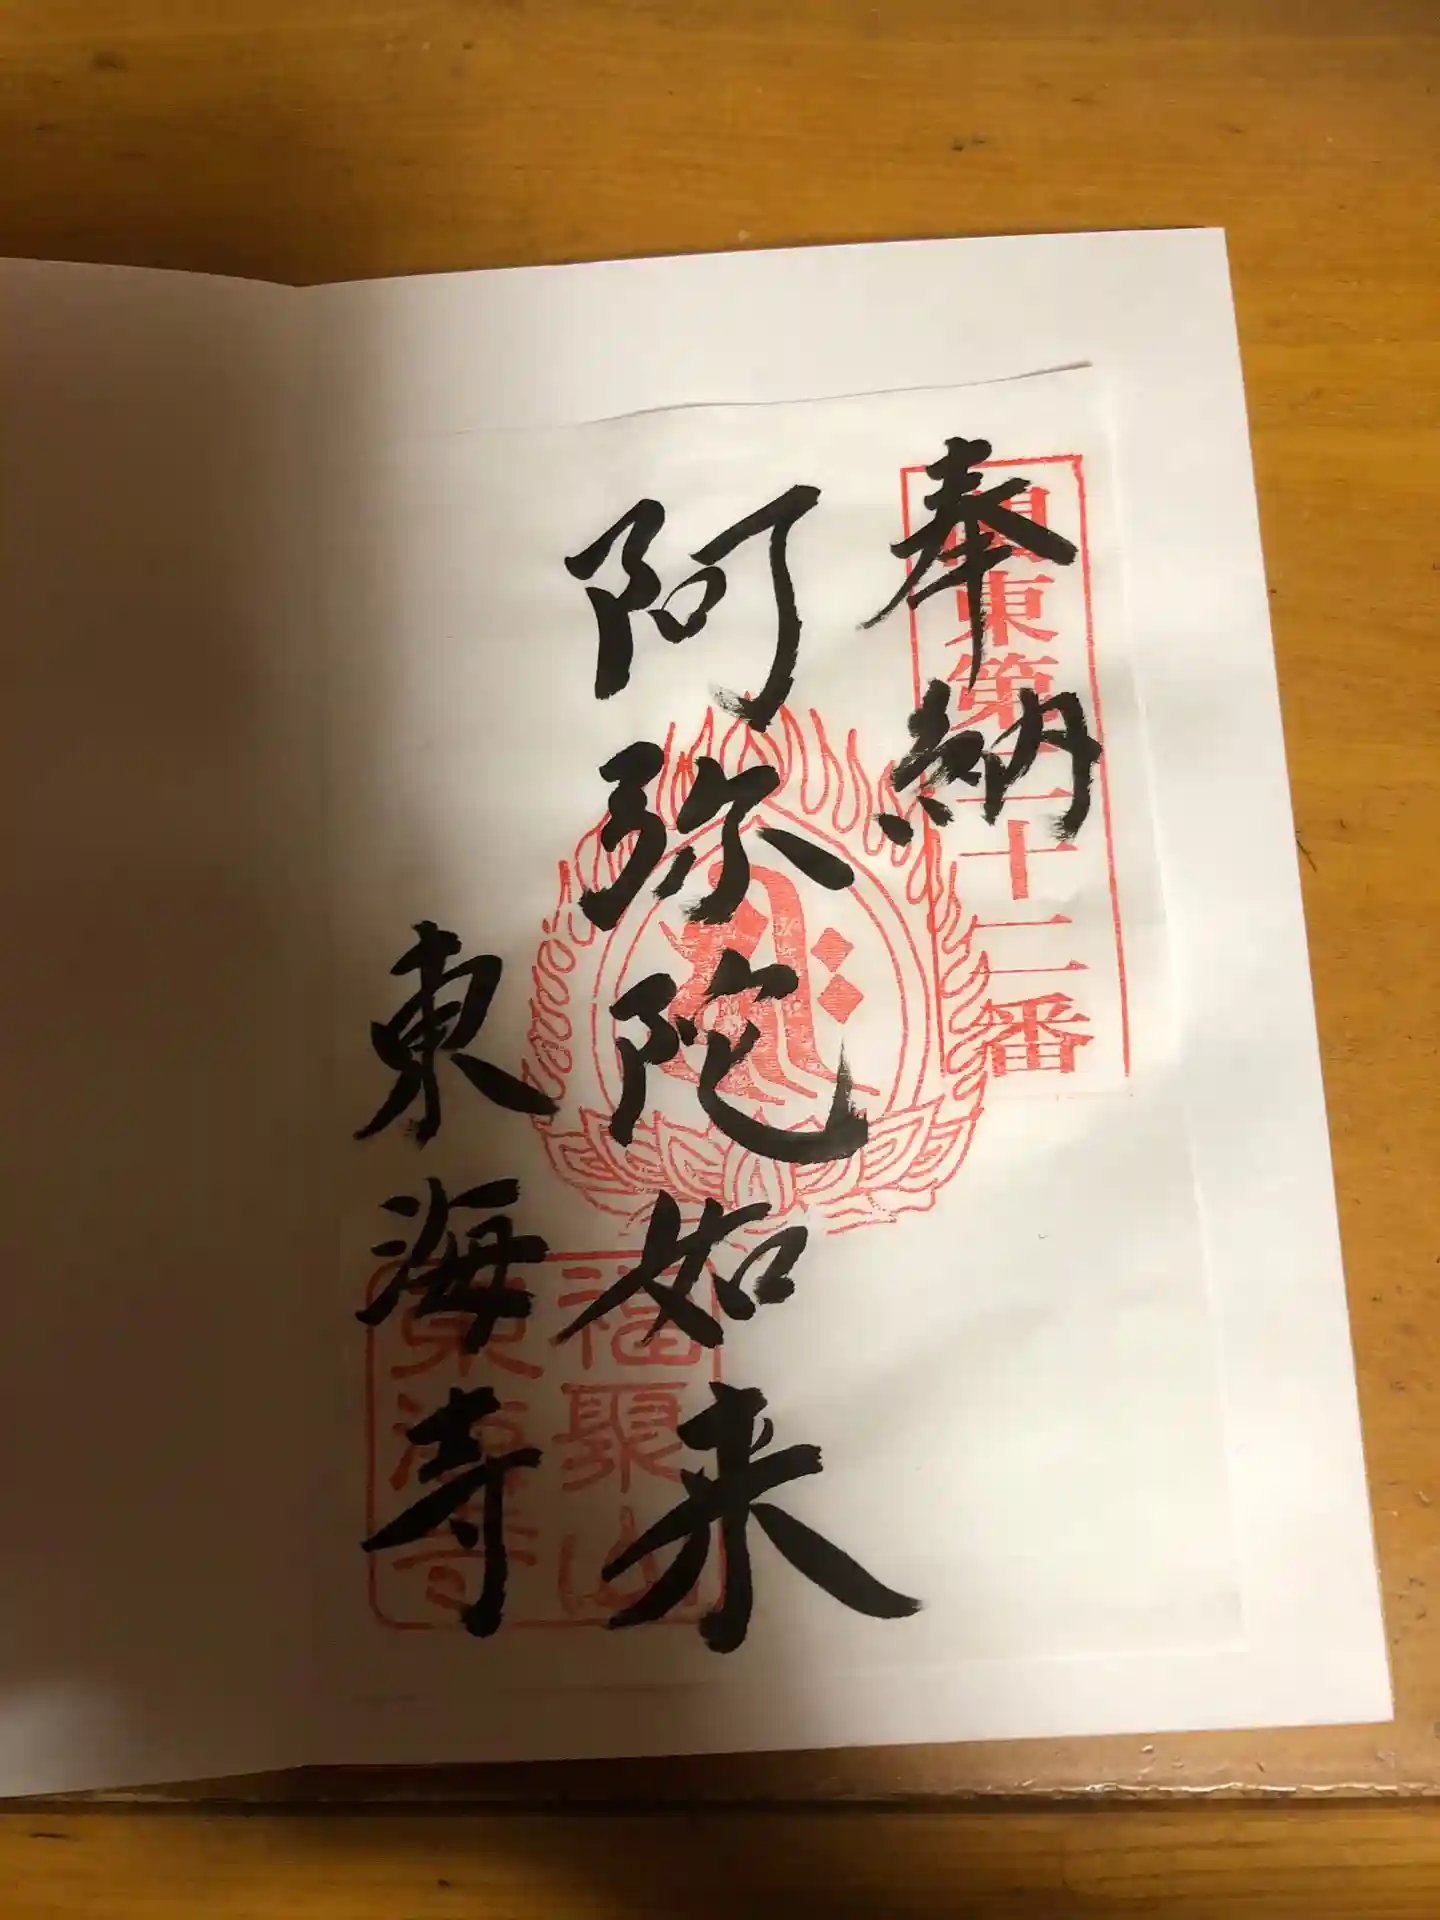 奉納
東第十二番
阿弥陀如来
東海寺
福聚山
東海寺